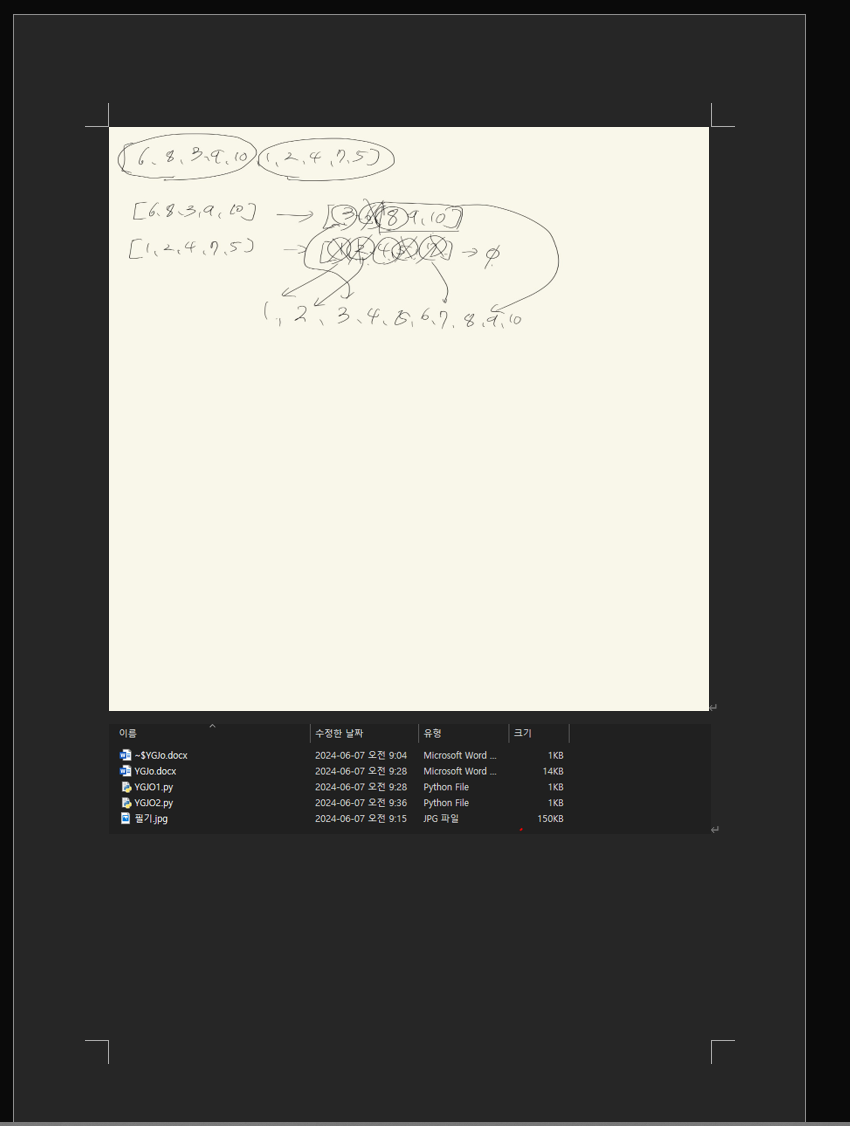 [6, 8, 3, 9, 10, 1, 2, 4, 7, 5]
[6, 8, 3, 9, 10] → [3, 6, 8, 9, 10]
[1, 2, 4, 7, 5] → [1, 2, 4, 5, 7] → ∅
1, 2, 3, 4, 5, 6, 7, 8, 9, 10
이름 수정한 날짜 유형 크기
~$YGJo.docx 2024-06-07 오전 9:04 Microsoft Word ... 1KB
YGJo.docx 2024-06-07 오전 9:28 Microsoft Word ... 14KB
YGJO1.py 2024-06-07 오전 9:28 Python File 1KB
YGJO2.py 2024-06-07 오전 9:36 Python File 1KB
필기.jpg 2024-06-07 오전 9:15 JPG 파일 150KB